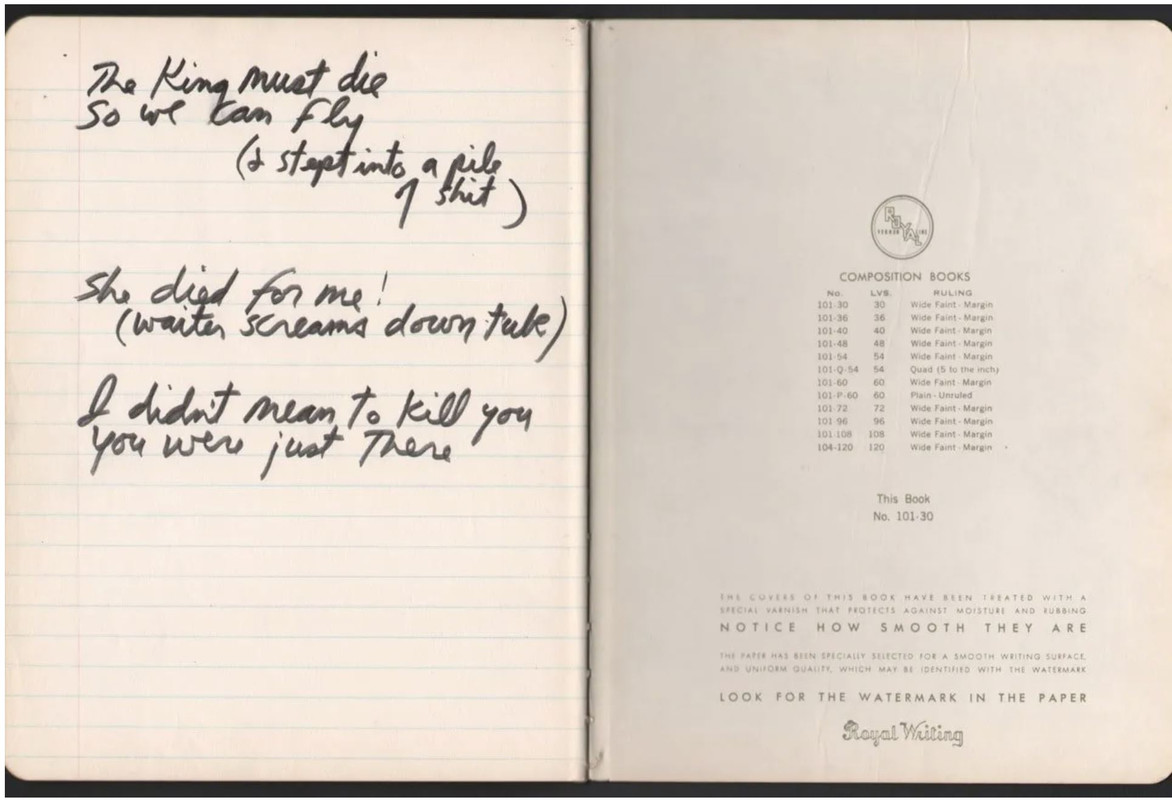 The King must die
So we can fly
(& stept into a pile
of shit)
She died for me!
(waiter screams down tube)
I didn't mean to kill you
you were just There
ROYAL
VERNON LINE
COMPOSITION BOOKS
No. LVS. RULING
101-30 30 Wide Faint - Margin
101-36 36 Wide Faint - Margin
101-40 40 Wide Faint - Margin
101-48 48 Wide Faint - Margin
101-54 54 Wide Faint - Margin
101-Q-54 54 Quad (5 to the inch)
101-60 60 Wide Faint - Margin
101-P-60 60 Plain - Unruled
101-72 72 Wide Faint - Margin
101-96 96 Wide Faint - Margin
101-108 108 Wide Faint - Margin
104-120 120 Wide Faint - Margin
This Book
No. 101-30
THE COVERS OF THIS BOOK HAVE BEEN TREATED WITH A
SPECIAL VARNISH THAT PROTECTS AGAINST MOISTURE AND RUBBING
NOTICE HOW SMOOTH THEY ARE
THE PAPER HAS BEEN SPECIALLY SELECTED FOR A SMOOTH WRITING SURFACE,
AND UNIFORM QUALITY, WHICH MAY BE IDENTIFIED WITH THE WATERMARK
LOOK FOR THE WATERMARK IN THE PAPER
Royal Writing